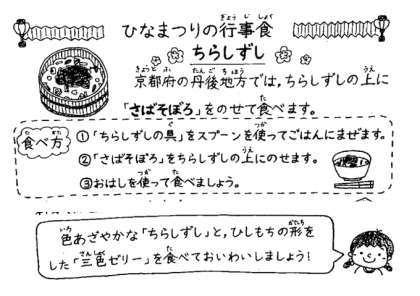 ひなまつりの行事食
ちらしずし
京都府の丹後地方では,ちらしずしの上に
「さばそぼろ」をのせて食べます。
食べ方
①「ちらしずしの具」をスプーンを使ってごはんにまぜます。
②「さばそぼろ」をちらしずしの上にのせます。
③おはしを使って食べましょう。
色あざやかな「ちらしずし」と,ひしもちの形を
した「三色ゼリー」を食べておいわいしましょう!